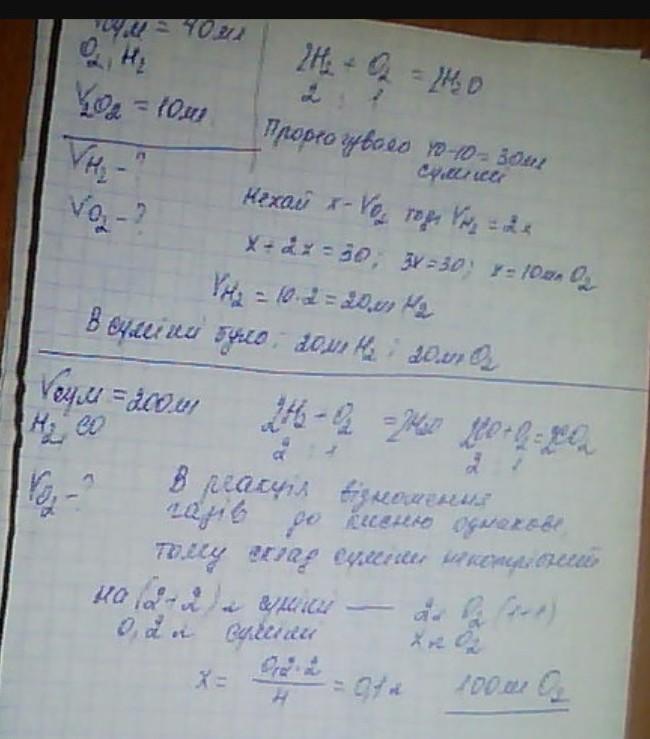 Vсум = 40мл
O₂, H₂
V₂O₂ = 10мл
VH₂ - ?
VO₂ - ?
2H₂ + O₂ = 2H₂O
2 : 1
Прореагувало 40-10=30мл
суміші
Нехай x - VO₂ тоді VH₂ = 2x
x + 2x = 30; 3x = 30; x = 10мл O₂
VH₂ = 10·2 = 20мл H₂
В суміші було: 20мл H₂ і 20мл O₂
Vсум = 200мл
H₂, CO
VO₂ - ?
2H₂ + O₂ = 2H₂O 2CO + O₂ = 2CO₂
2 : 1 2 : 1
В реакція відношення
газів до кисню однакове,
тому склад суміші непотрібний
на (2+2) л суміші — 2л O₂ (1+1)
0,2 л суміші x л O₂
x = 0,2·2 / 4 = 0,1л 100мл O₂